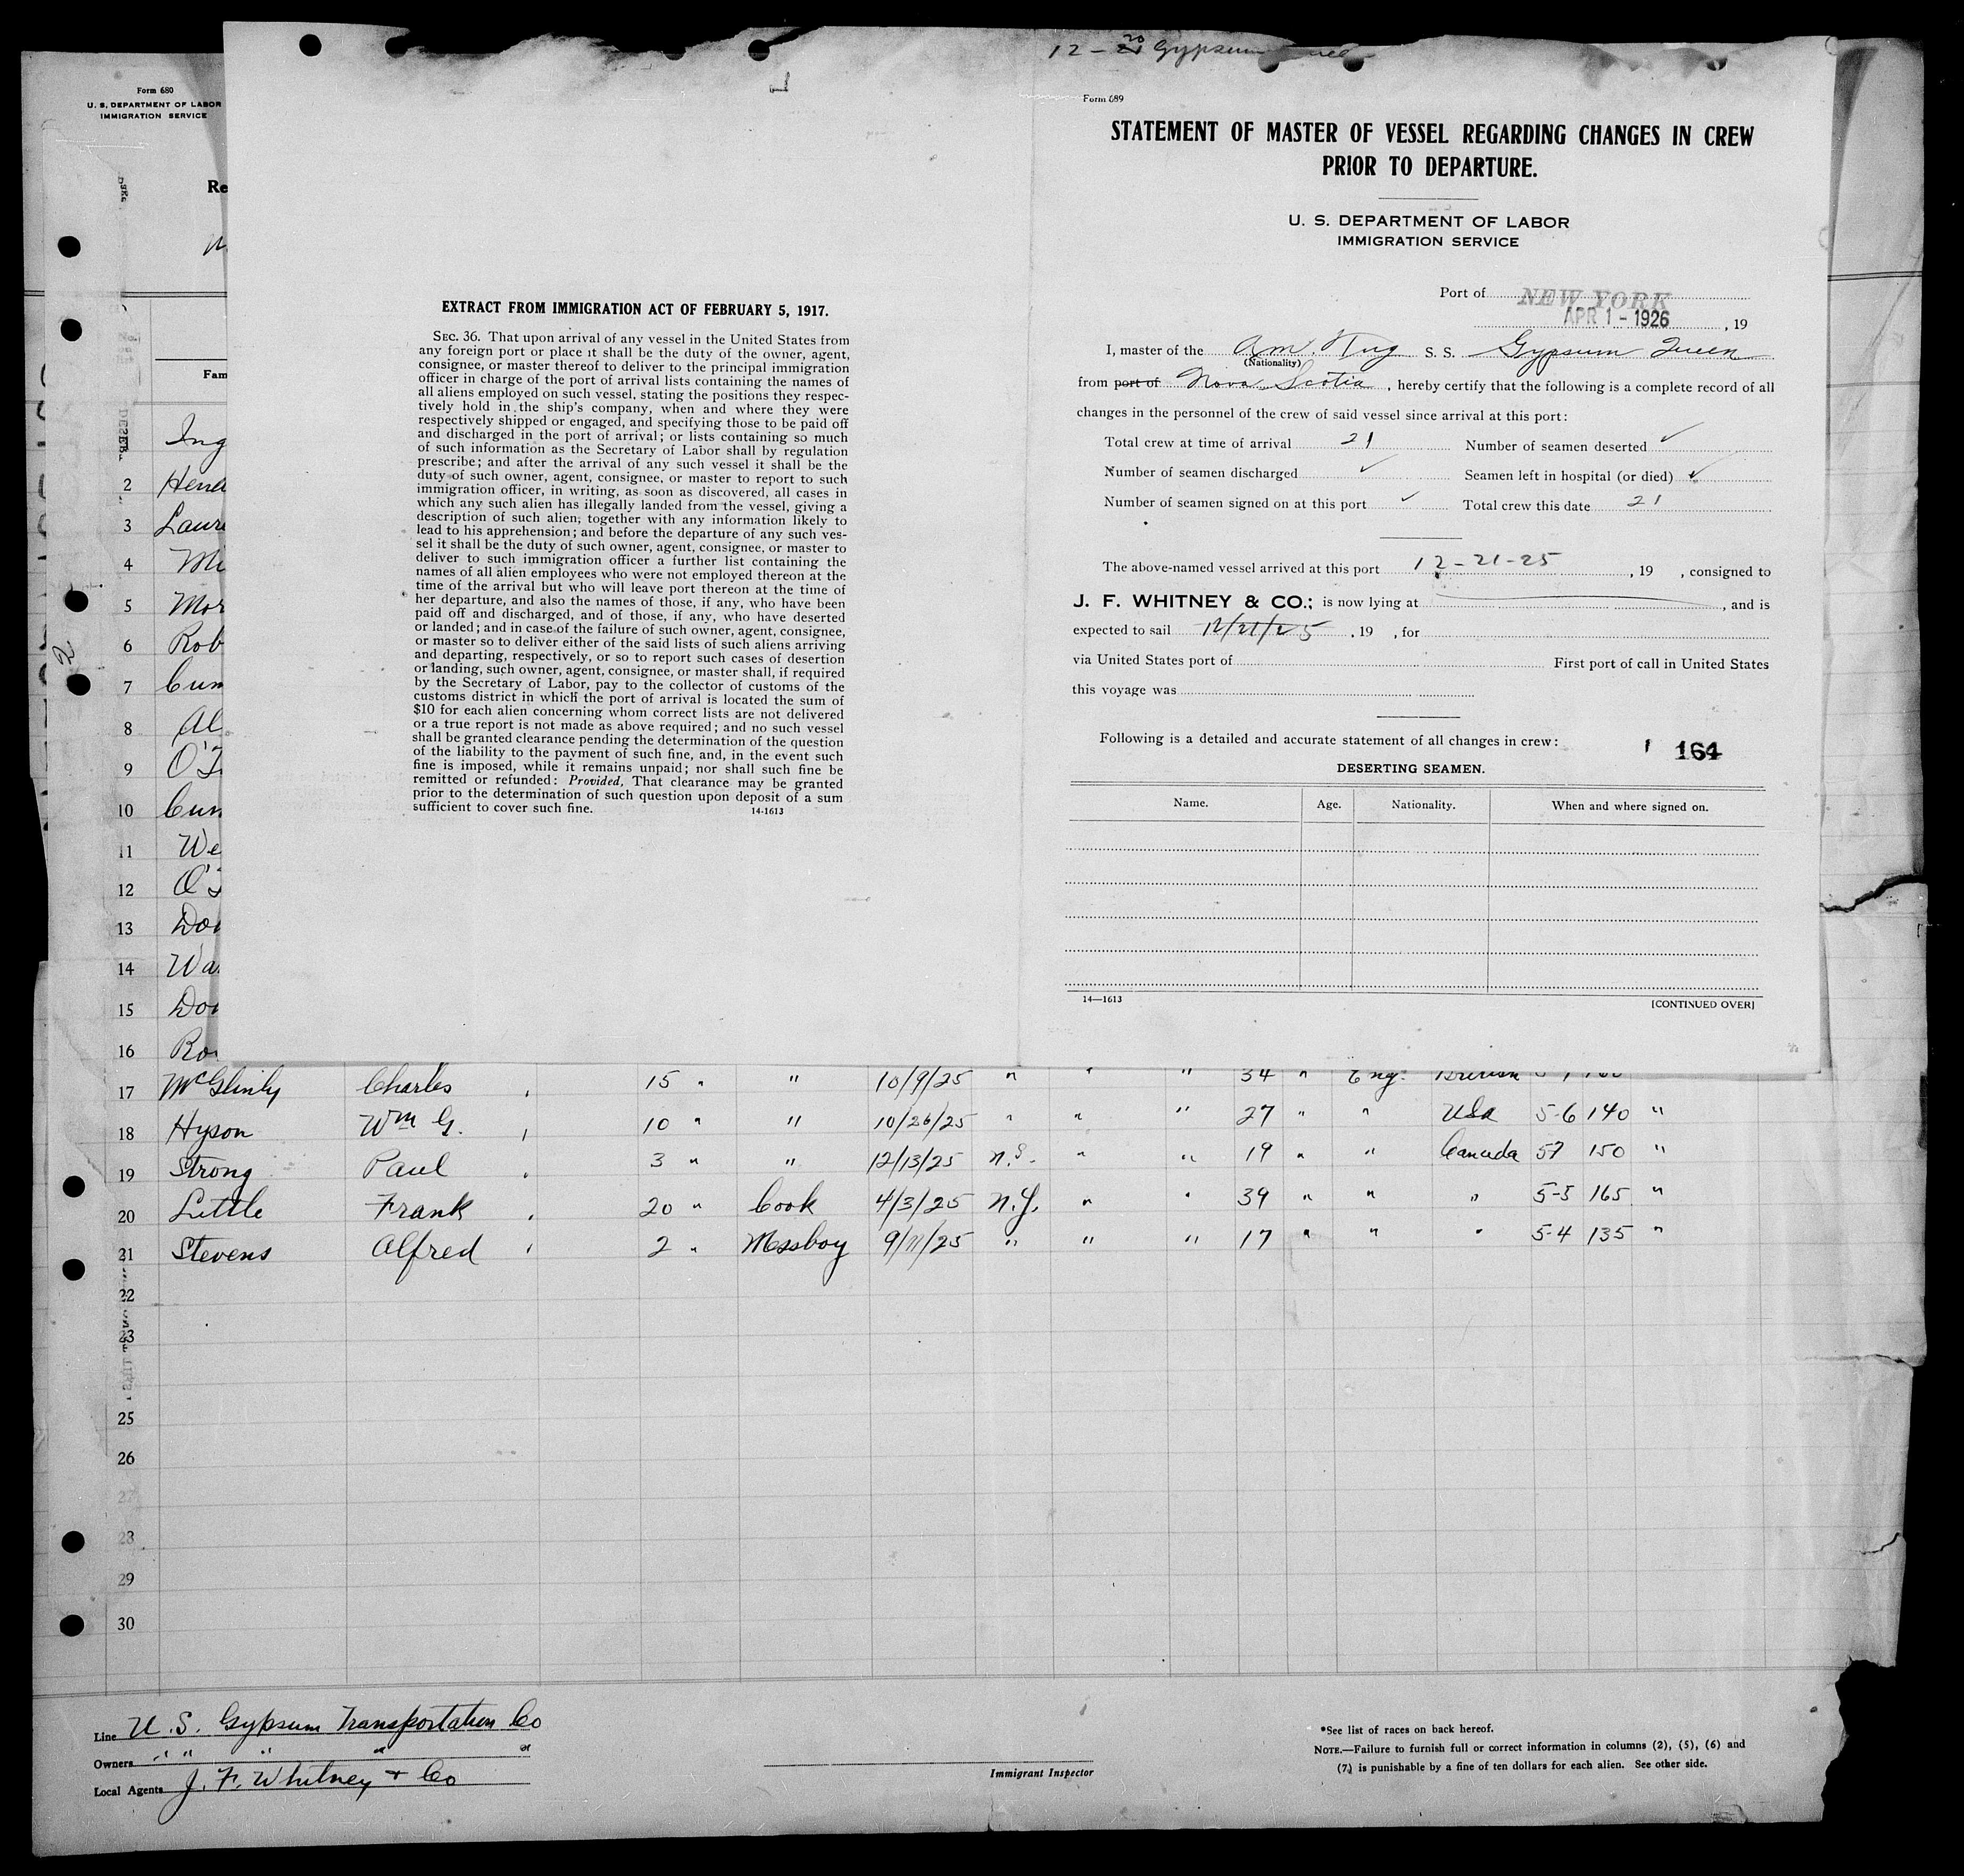 12 - 20 Gypsum
Form 680
U. S. DEPARTMENT OF LABOR
IMMIGRATION SERVICE
Re
Fam
Ing
2 Hend
3 Laur
4 Mi
5 Mor
6 Rob
7 Cun
8 Al
9 O'
10 Cun
11 We
12 O'
13 Don
14 Wa
15 Don
16 Ro
EXTRACT FROM IMMIGRATION ACT OF FEBRUARY 5, 1917.
SEC. 36. That upon arrival of any vessel in the United States from
any foreign port or place it shall be the duty of the owner, agent,
consignee, or master thereof to deliver to the principal immigration
officer in charge of the port of arrival lists containing the names of
all aliens employed on such vessel, stating the positions they respec-
tively hold in the ship's company, when and where they were
respectively shipped or engaged, and specifying those to be paid off
and discharged in the port of arrival; or lists containing so much
of such information as the Secretary of Labor shall by regulation
prescribe; and after the arrival of any such vessel it shall be the
duty of such owner, agent, consignee, or master to report to such
immigration officer, in writing, as soon as discovered, all cases in
which any such alien has illegally landed from the vessel, giving a
description of such alien, together with any information likely to
lead to his apprehension; and before the departure of any such ves-
sel it shall be the duty of such owner, agent, consignee, or master to
deliver to such immigration officer a further list containing the
names of all alien employees who were not employed thereon at the
time of the arrival but who will leave port thereon at the time of
her departure, and also the names of those, if any, who have been
paid off and discharged, and of those, if any, who have deserted
or landed; and in case of the failure of such owner, agent, consignee,
or master so to deliver either of the said lists of such aliens arriving
and departing, respectively, or so to report such cases of desertion
or landing, such owner, agent, consignee, or master shall, if required
by the Secretary of Labor, pay to the collector of customs of the
customs district in which the port of arrival is located the sum of
$10 for each alien concerning whom correct lists are not delivered
or a true report is not made as above required; and no such vessel
shall be granted clearance pending the determination of the question
of the liability to the payment of such fine, and, in the event such
fine is imposed, while it remains unpaid; nor shall such fine be
remitted or refunded: Provided, That clearance may be granted
prior to the determination of such question upon deposit of a sum
sufficient to cover such fine. 14-1613
Form 689
STATEMENT OF MASTER OF VESSEL REGARDING CHANGES IN CREW
PRIOR TO DEPARTURE.
U. S. DEPARTMENT OF LABOR
IMMIGRATION SERVICE
Port of NEW YORK
APR 1 - 1926 , 19
I, master of the Am. S. S. Gypsum Queen
(Nationality)
from port of Nova Scotia, hereby certify that the following is a complete record of all
changes in the personnel of the crew of said vessel since arrival at this port:
Total crew at time of arrival 21 Number of seamen deserted ✓
Number of seamen discharged ✓ Seamen left in hospital (or died) ✓
Number of seamen signed on at this port ✓ Total crew this date 21
The above-named vessel arrived at this port 12-21-25, 19 , consigned to
J. F. WHITNEY & CO.; is now lying at , and is
expected to sail 12/21/25 , 19 , for
via United States port of First port of call in United States
this voyage was
Following is a detailed and accurate statement of all changes in crew: 164
DESERTING SEAMEN.
Name. Age. Nationality. When and where signed on.
14—1613 [CONTINUED OVER]
17 McGlinly Charles 15 " " 10/9/25 " " " 34 " Eng. British
18 Hyson Wm G. 10 " " 10/26/25 " " " 27 " " USa 5-6 140 "
19 Strong Paul 3 " " 12/13/25 N.S. " " 19 " " Canada 57 150 "
20 Little Frank 20 " Cook 4/3/25 N.Y. " " 39 " " " 5-5 165 "
21 Stevens Alfred 2 " Messboy 9/11/25 " " " 17 " " " 5-4 135 "
22
23
25
26
27
28
29
30
Line U. S. Gypsum Transportation Co
Owners " " " " "
Local Agents J. F. Whitney & Co
Immigrant Inspector
*See list of races on back hereof.
NOTE.—Failure to furnish full or correct information in columns (2), (5), (6) and
(7) is punishable by a fine of ten dollars for each alien. See other side.